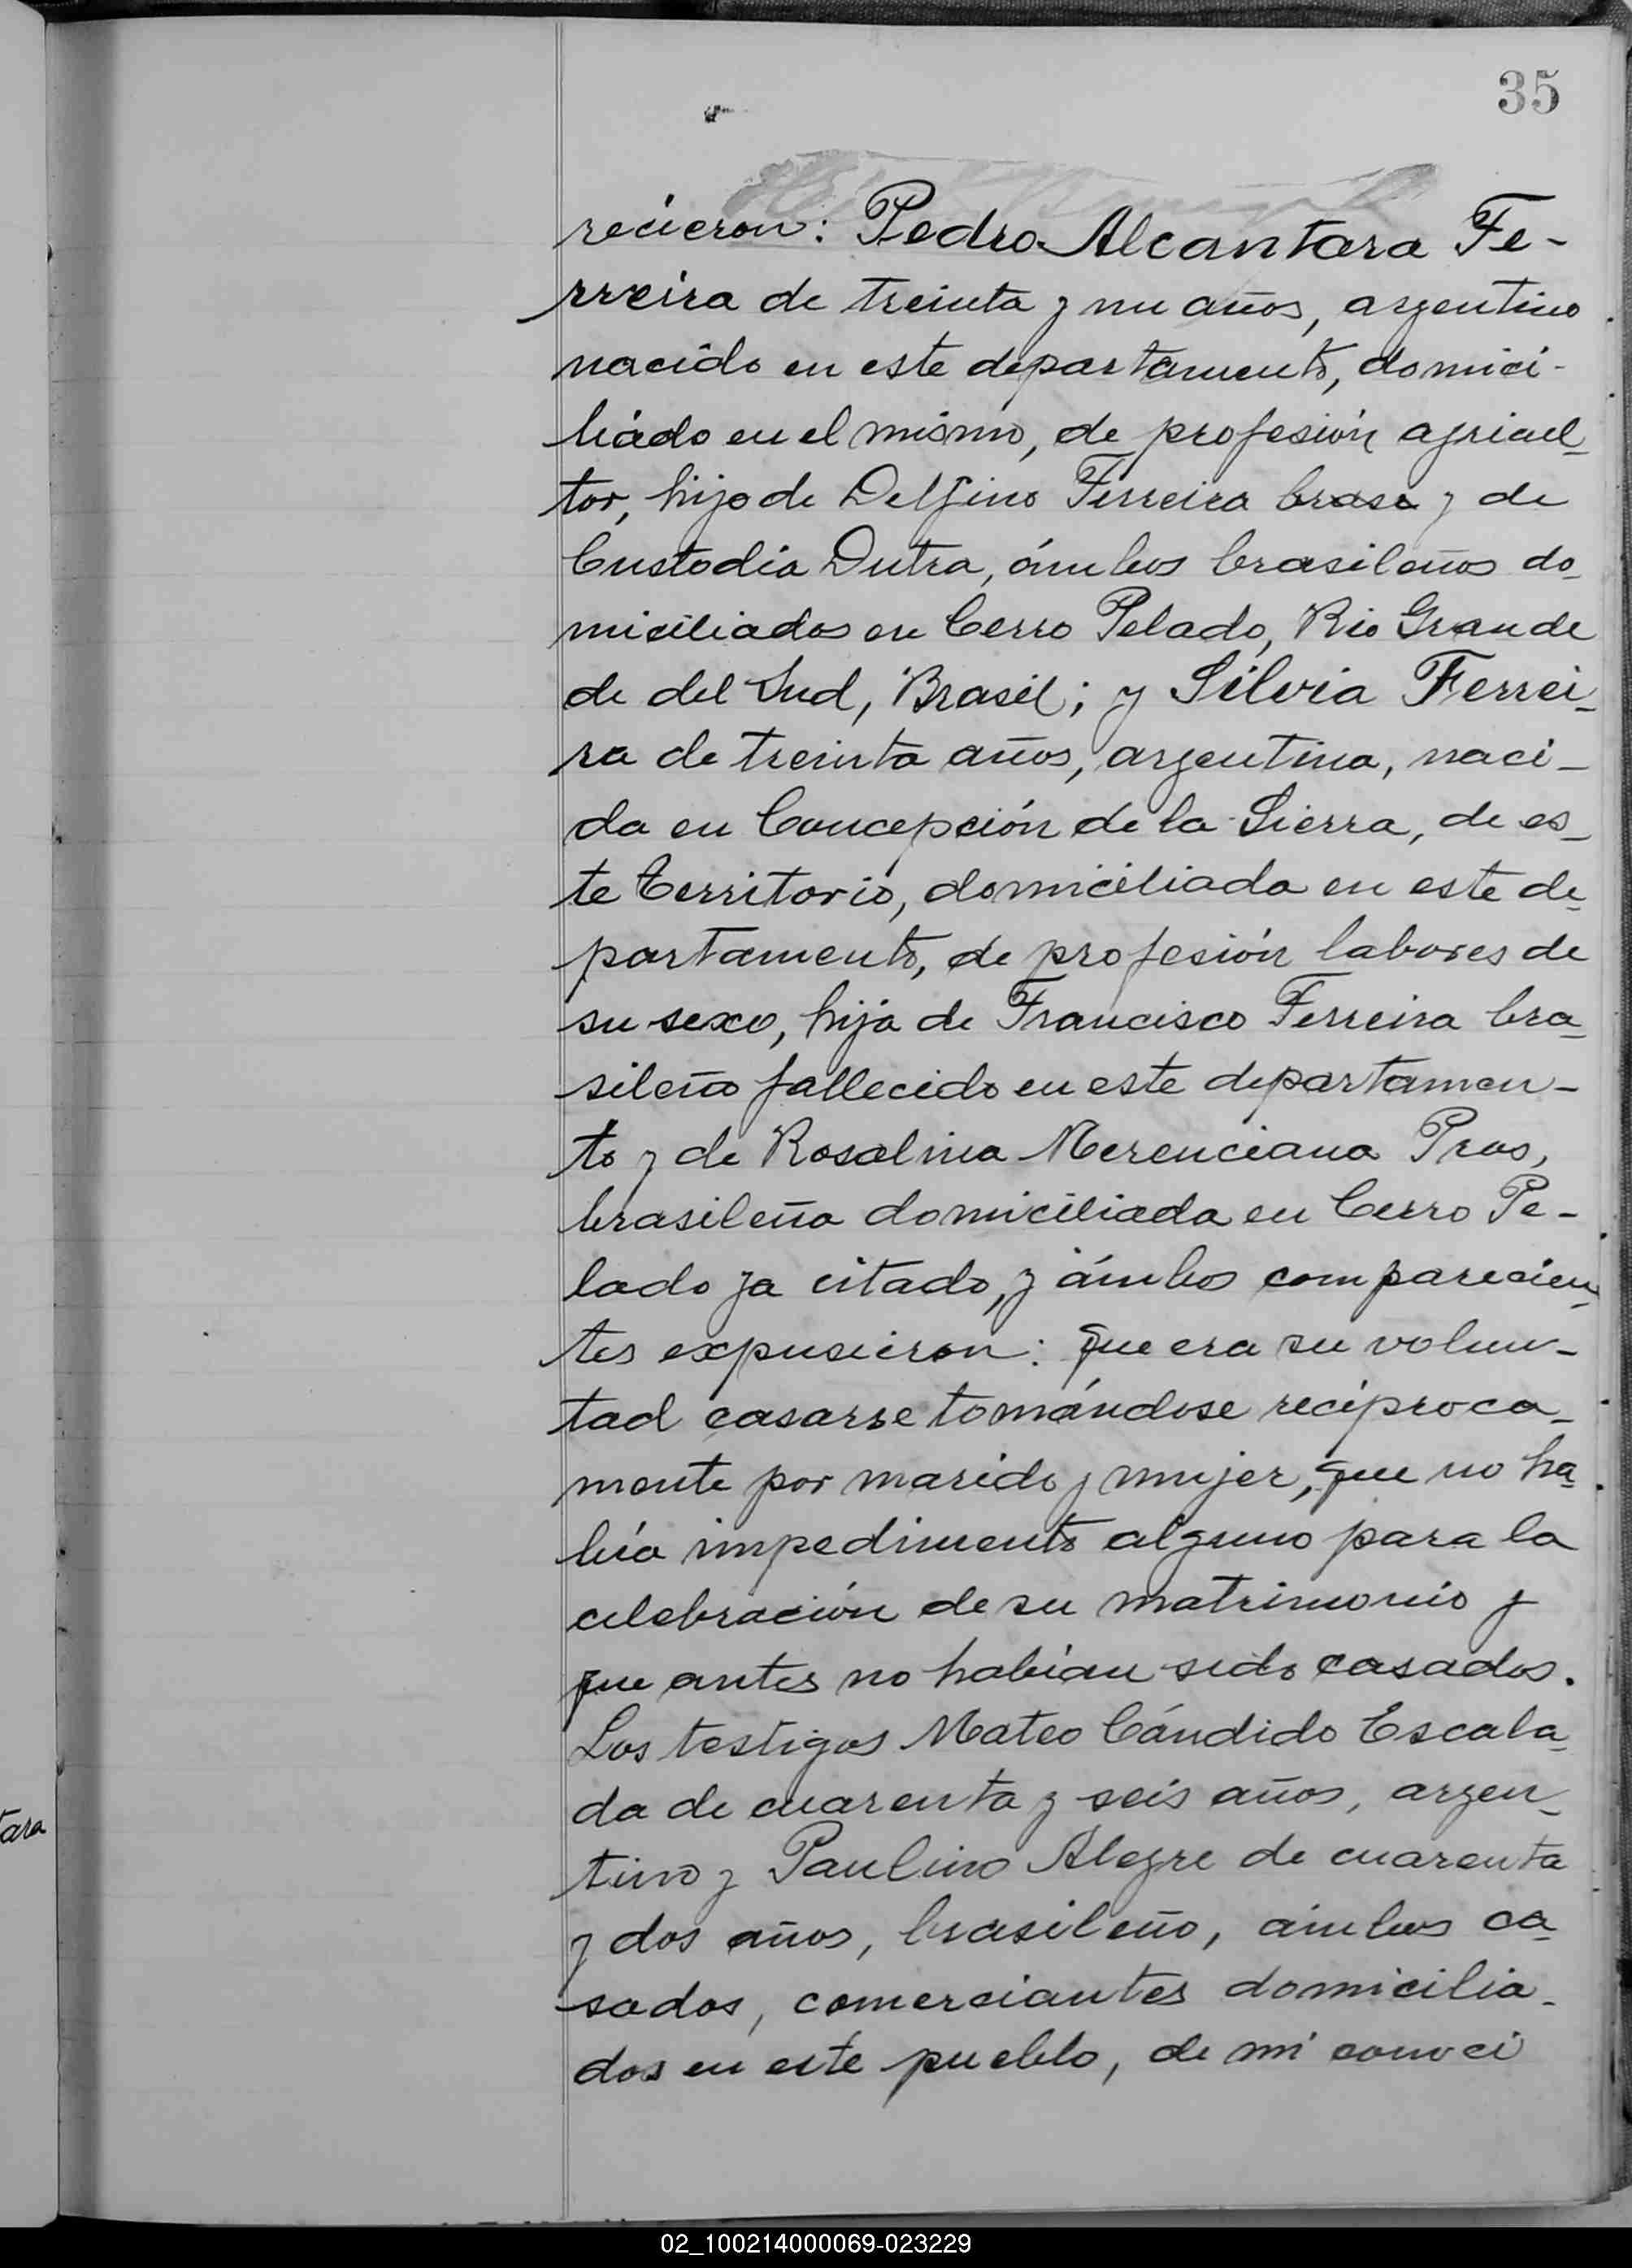 35
recieron: Pedro Alcantara Fe-
rreira de treinta y un años, argentino
nacido en este departamento, domici-
liado en el mismo, de profesión agricul-
tor, hijo de Delfino Ferreira brasi y de
Custodia Dutra, ámbos brasileños do-
miciliados en Cerro Pelado, Rio Grande
de del Sud, Brasil; y Silvia Ferrei-
ra de treinta años, argentina, naci-
da en Concepción de la Sierra, de es-
te territorio, domiciliada en este de-
partamento, de profesión labores de
su sexo, hija de Francisco Ferreira bra-
sileño fallecido en este departamen-
to y de Rosalina Merenciana
brasileña domiciliada en Cerro Pe-
lado ya citado, y ámbos comparecien-
tes expusieron: que era su volun-
tad casarse tomándose recíproca-
mente por marido y mujer, que no ha-
bía impedimento alguno para la
celebración de su matrimonio y
que antes no habían sido casados.
Los testigos Mateo Cándido Escala-
da de cuarenta y seis años, argen-
tino y Paulino Alegre de cuarenta
y dos años, brasileño, ámbos ca-
sados, comerciantes domicilia-
dos en este pueblo, de mi conoci
tara
02_100214000069-023229